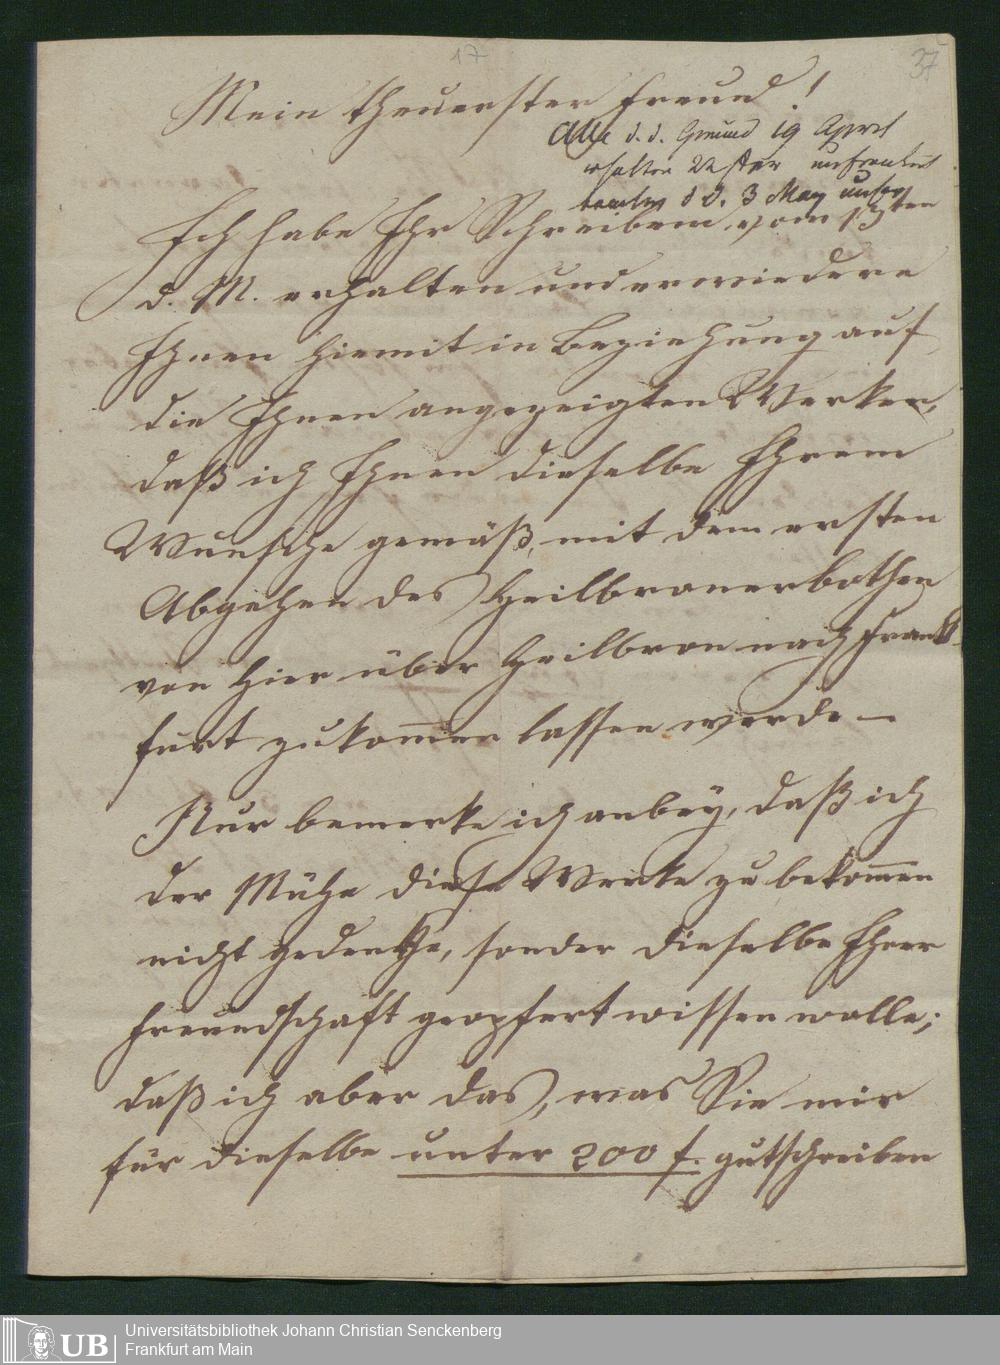 17
37
Mein theuerster Freund!
d. d. Gmünd 19 April
erhalten 22ster
d d. 3 May
Ich habe Ihr Schreiben vom 13ten
d. M. erhalten und erwiedere
Ihnen hiemit in Beziehung auf
die Ihnen angezeigten Werker,
daß ich Ihnen dieselbe Ihrem
Wunsche gemäß, mit dem ersten
Abgehen des Heilbronerbothen
von hier über Heilbron nach Frank-
furt zukom̄en lassen werde —
Nur bemerke ich anbey, daß ich
der Mühe diese Werke zu bekom̄en
nicht gedenke, sonder dieselbe Ihrer
Freundschaft geopfert wissen wolle;
daß ich aber das, was Sie mir
für dieselbe unter 200 f. gutschreiben
UB
Universitätsbibliothek Johann Christian Senckenberg
Frankfurt am Main